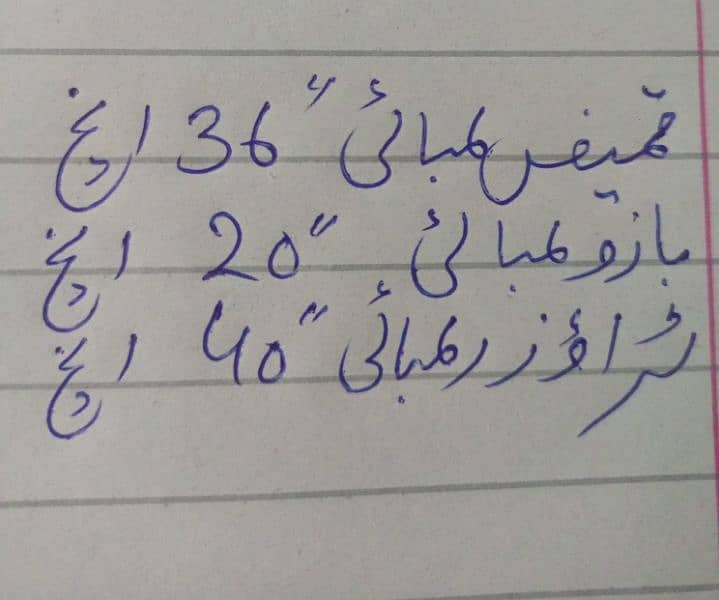 قمیض لمبائی "36 انچ
بازو لمبائی "20 انچ
ٹراؤزر لمبائی "40 انچ